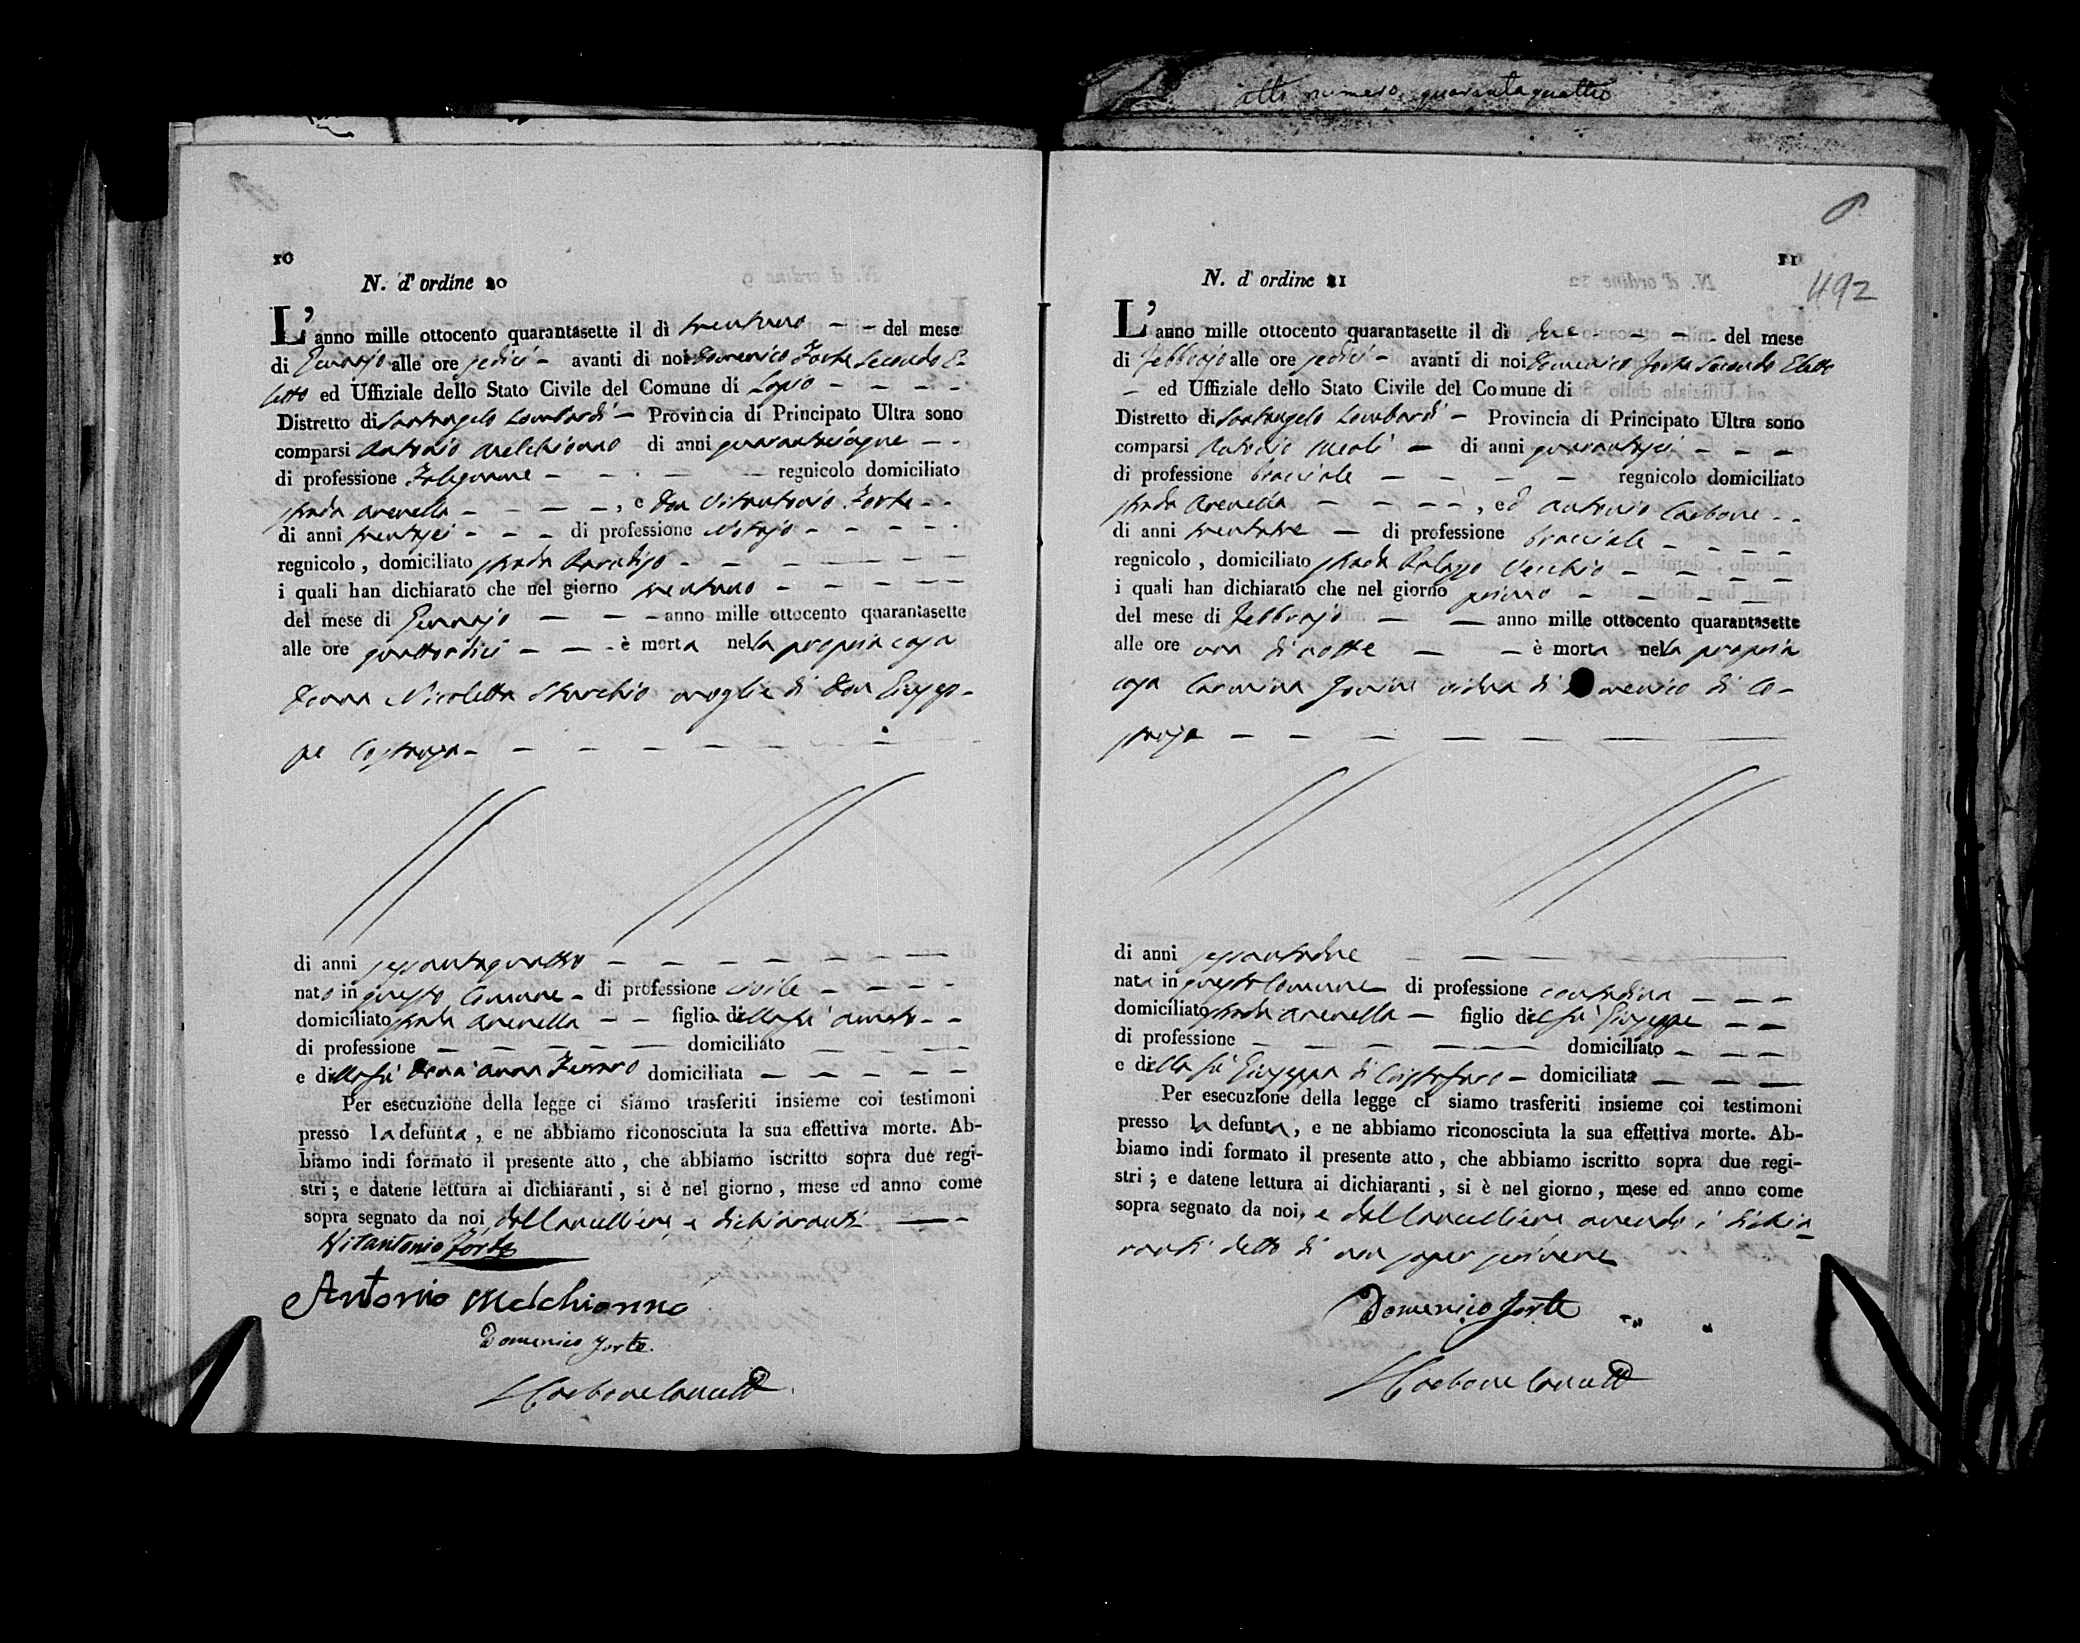 atto numero quarantaquattro
10
N. d' ordine 20
L'anno mille ottocento quarantasette il dì trentuno - - del mese
di Gennajo alle ore sedici - avanti di noi Domenico Forte Secondo E-
letto ed Uffiziale dello Stato Civile del Comune di Lapio - - - -
Distretto di Santangelo Lombardi - Provincia di Principato Ultra sono
comparsi Antonio Melchionno di anni quarantacinque - -
di professione Falegname - - - - regnicolo domiciliato
strada Arenella - - - - , e Don Vitantonio Forte - -
di anni trentasei - - - di professione Notajo - - - - -
regnicolo , domiciliato strada Paradiso - - - - - -
i quali han dichiarato che nel giorno trentuno - - - - -
del mese di Gennajo - - - anno mille ottocento quarantasette
alle ore quattordici - - - è morta nella propria casa
Donna Nicoletta moglie di Don Giusep-
pe - - - - - - - - -
di anni sessantaquattro - - - - - - -
nato in questo Comune - di professione civile - - - -
domiciliato strada Arenella - - figlia di - -
di professione - - - - - domiciliato - - - -
e della fù Donna Anna domiciliata - - - - -
Per esecuzione della legge ci siamo trasferiti insieme coi testimoni
presso la defunta , e ne abbiamo riconosciuta la sua effettiva morte. Ab-
biamo indi formato il presente atto , che abbiamo iscritto sopra due regi-
stri ; e datene lettura ai dichiaranti , si è nel giorno , mese ed anno come
sopra segnato da noi dal Cancelliere e dichiaranti - -
Vitantonio Forte
Antonio Melchionno
Domenico Forte
Carbone Cancell
11
492
N. d' ordine 21
L'anno mille ottocento quarantasette il dì due - - - - del mese
di Febbrajo alle ore sedici - avanti di noi Domenico Forte Secondo Eletto
- ed Uffiziale dello Stato Civile del Comune di
Distretto di Santangelo Lombardi - Provincia di Principato Ultra sono
comparsi Antonio Meoli - di anni quarantasei - - -
di professione bracciale - - - - regnicolo domiciliato
strada Arenella - - - - , ed Antonio Carbone - -
di anni trentatre - di professione bracciale - - - -
regnicolo , domiciliato strada Palazzo Vecchio - - - -
i quali han dichiarato che nel giorno primo - - - -
del mese di Febbrajo - - anno mille ottocento quarantasette
alle ore una di notte - - è morta nella propria
casa Carmina vedova di Domenico di Ca-
- - - - - - - -
di anni sessantadue - - - - -
nata in questo Comune - di professione contadina - - -
domiciliato strada Arenella - figlio del fù Giuseppe - -
di professione - - - - - domiciliato - - -
e della fù Giuseppa di Cristofaro - domiciliata - - -
Per esecuzione della legge ci siamo trasferiti insieme coi testimoni
presso la defunta , e ne abbiamo riconosciuta la sua effettiva morte. Ab-
biamo indi formato il presente atto , che abbiamo iscritto sopra due regi-
stri ; e datene lettura ai dichiaranti , si è nel giorno , mese ed anno come
sopra segnato da noi, e dal Cancelliere avendo i dichia-
ranti detto di non saper scrivere
Domenico Forte
Carbone Cancell